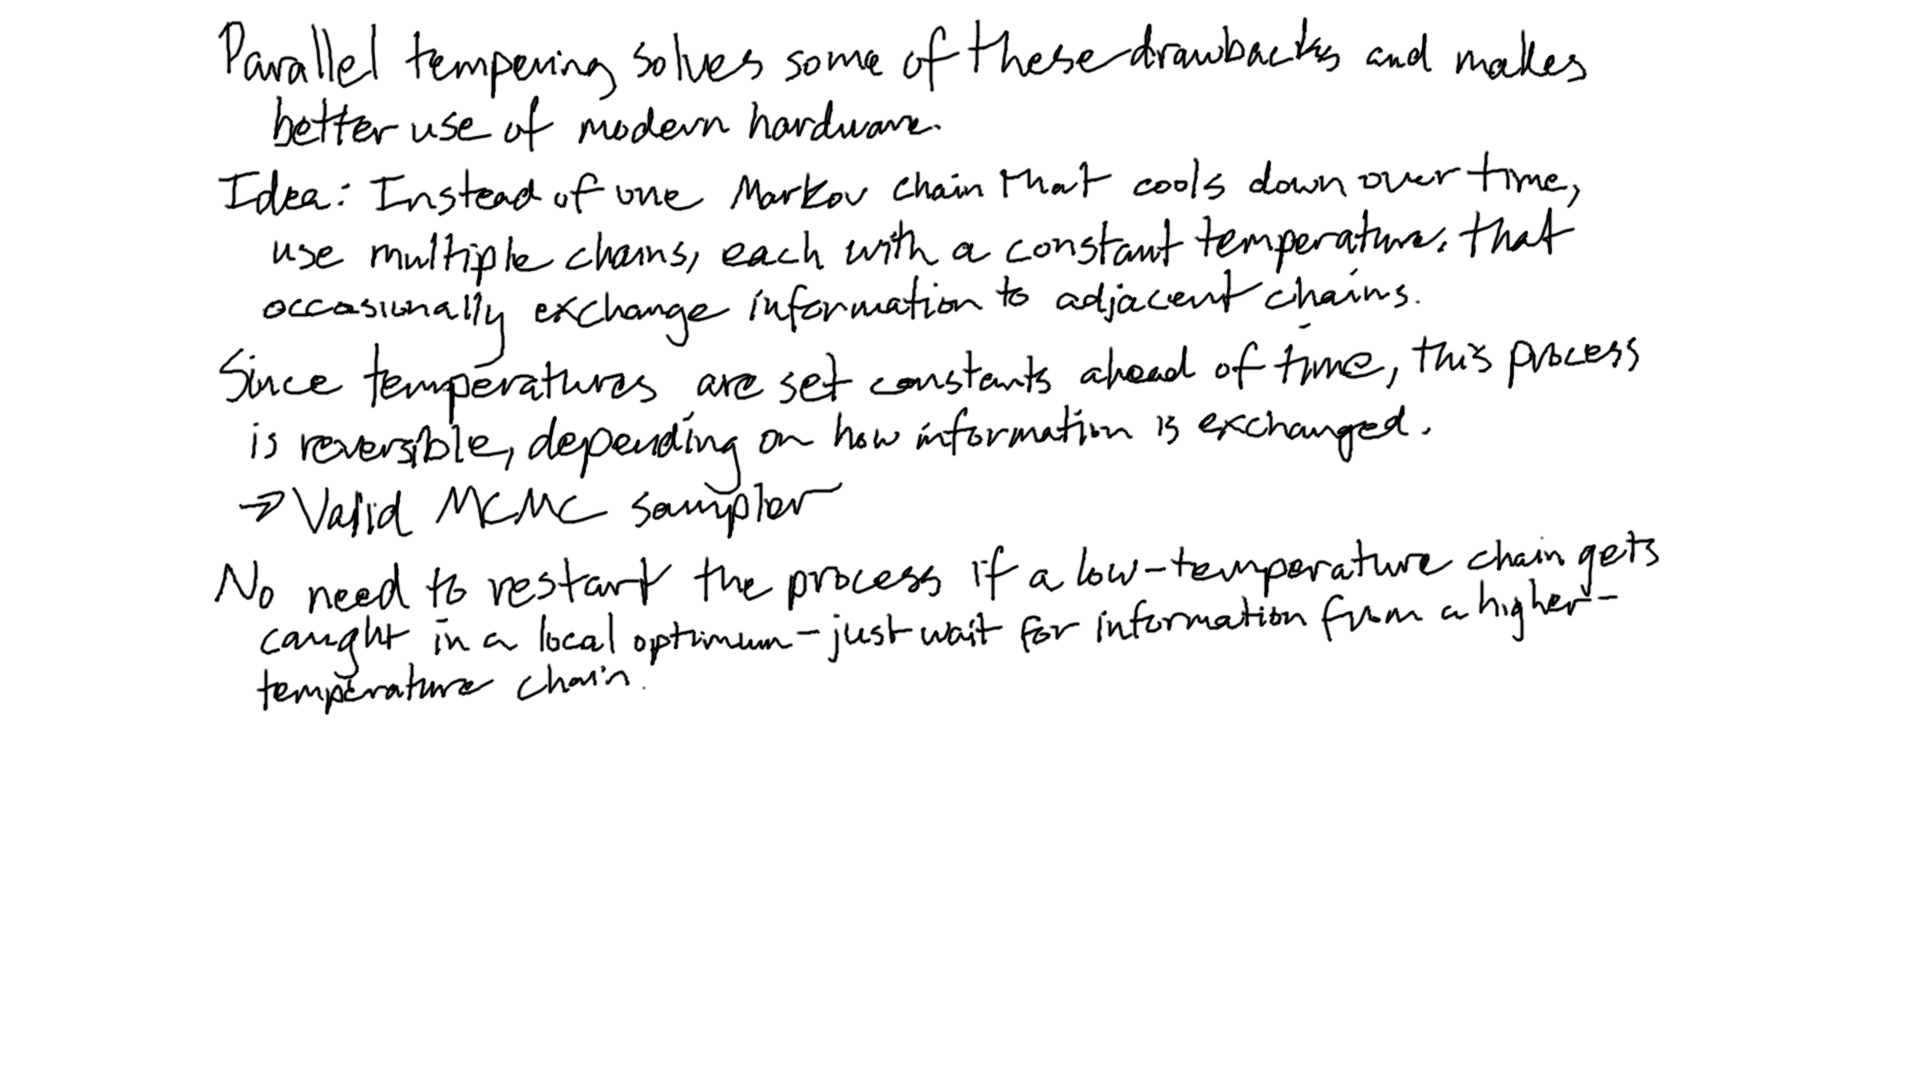 Parallel tempering solves some of these drawbacks and makes
better use of modern hardware.
Idea: Instead of one Markov chain that cools down over time,
use multiple chains, each with a constant temperature, that
occasionally exchange information to adjacent chains.
Since temperatures are set constants ahead of time, this process
is reversible, depending on how information is exchanged.
→ Valid MCMC sampler
No need to restart the process if a low-temperature chain gets
caught in a local optimum - just wait for information from a higher-
temperature chain.